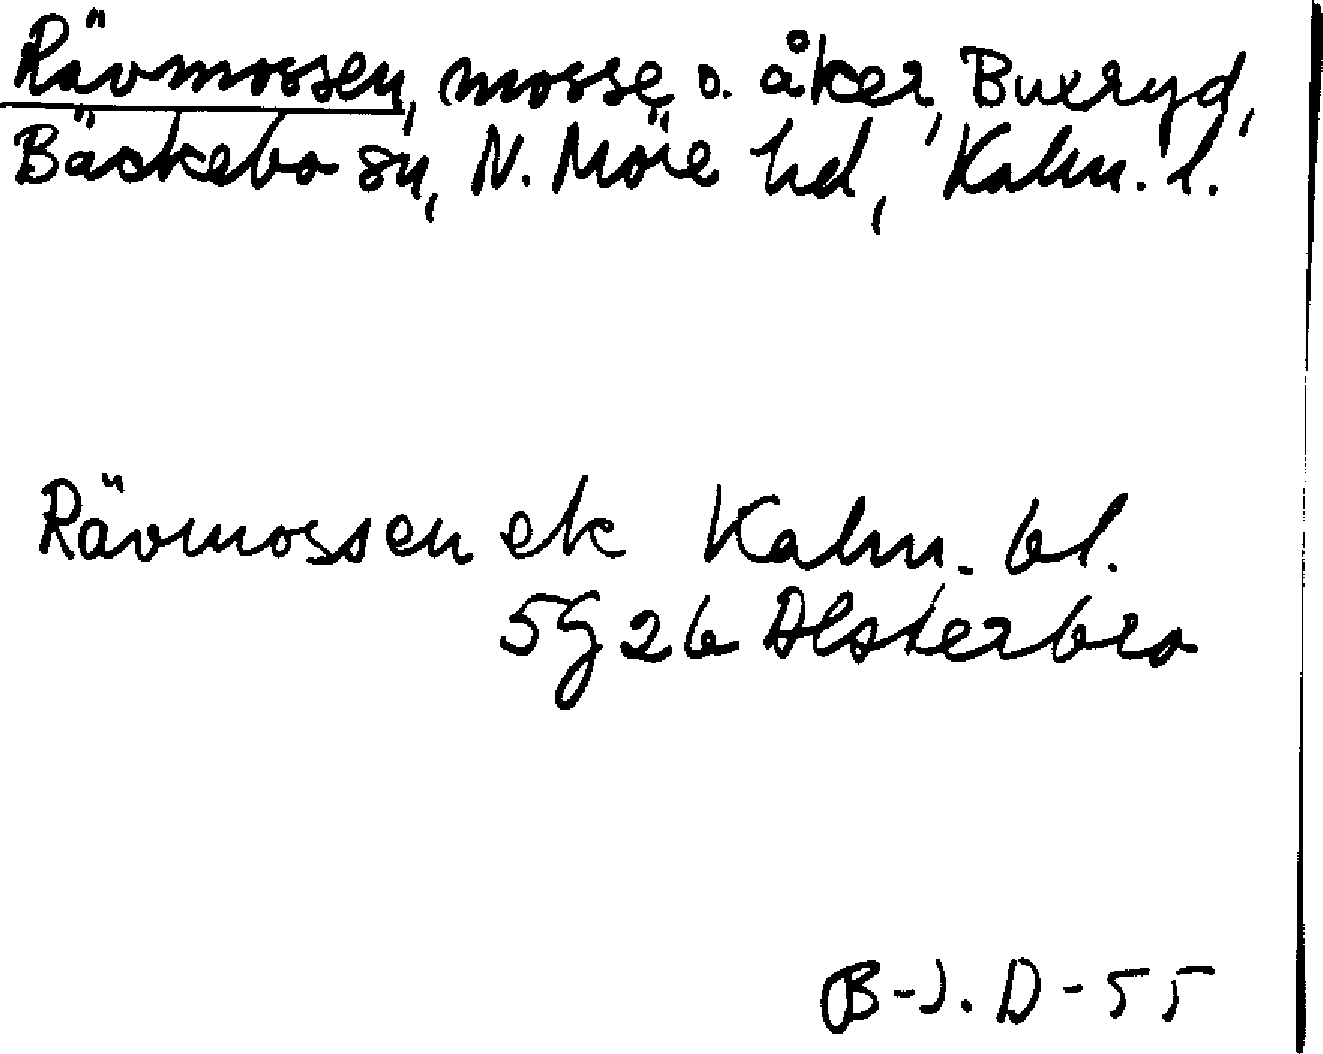 Rävmossen, mosse o. åker, Bueryd,
Bäckebo sn, N. Möre hd, Kalm. l.
Rävmossen ek Kalm. bl.
5G 2b Alsterbro
B-J. D-55